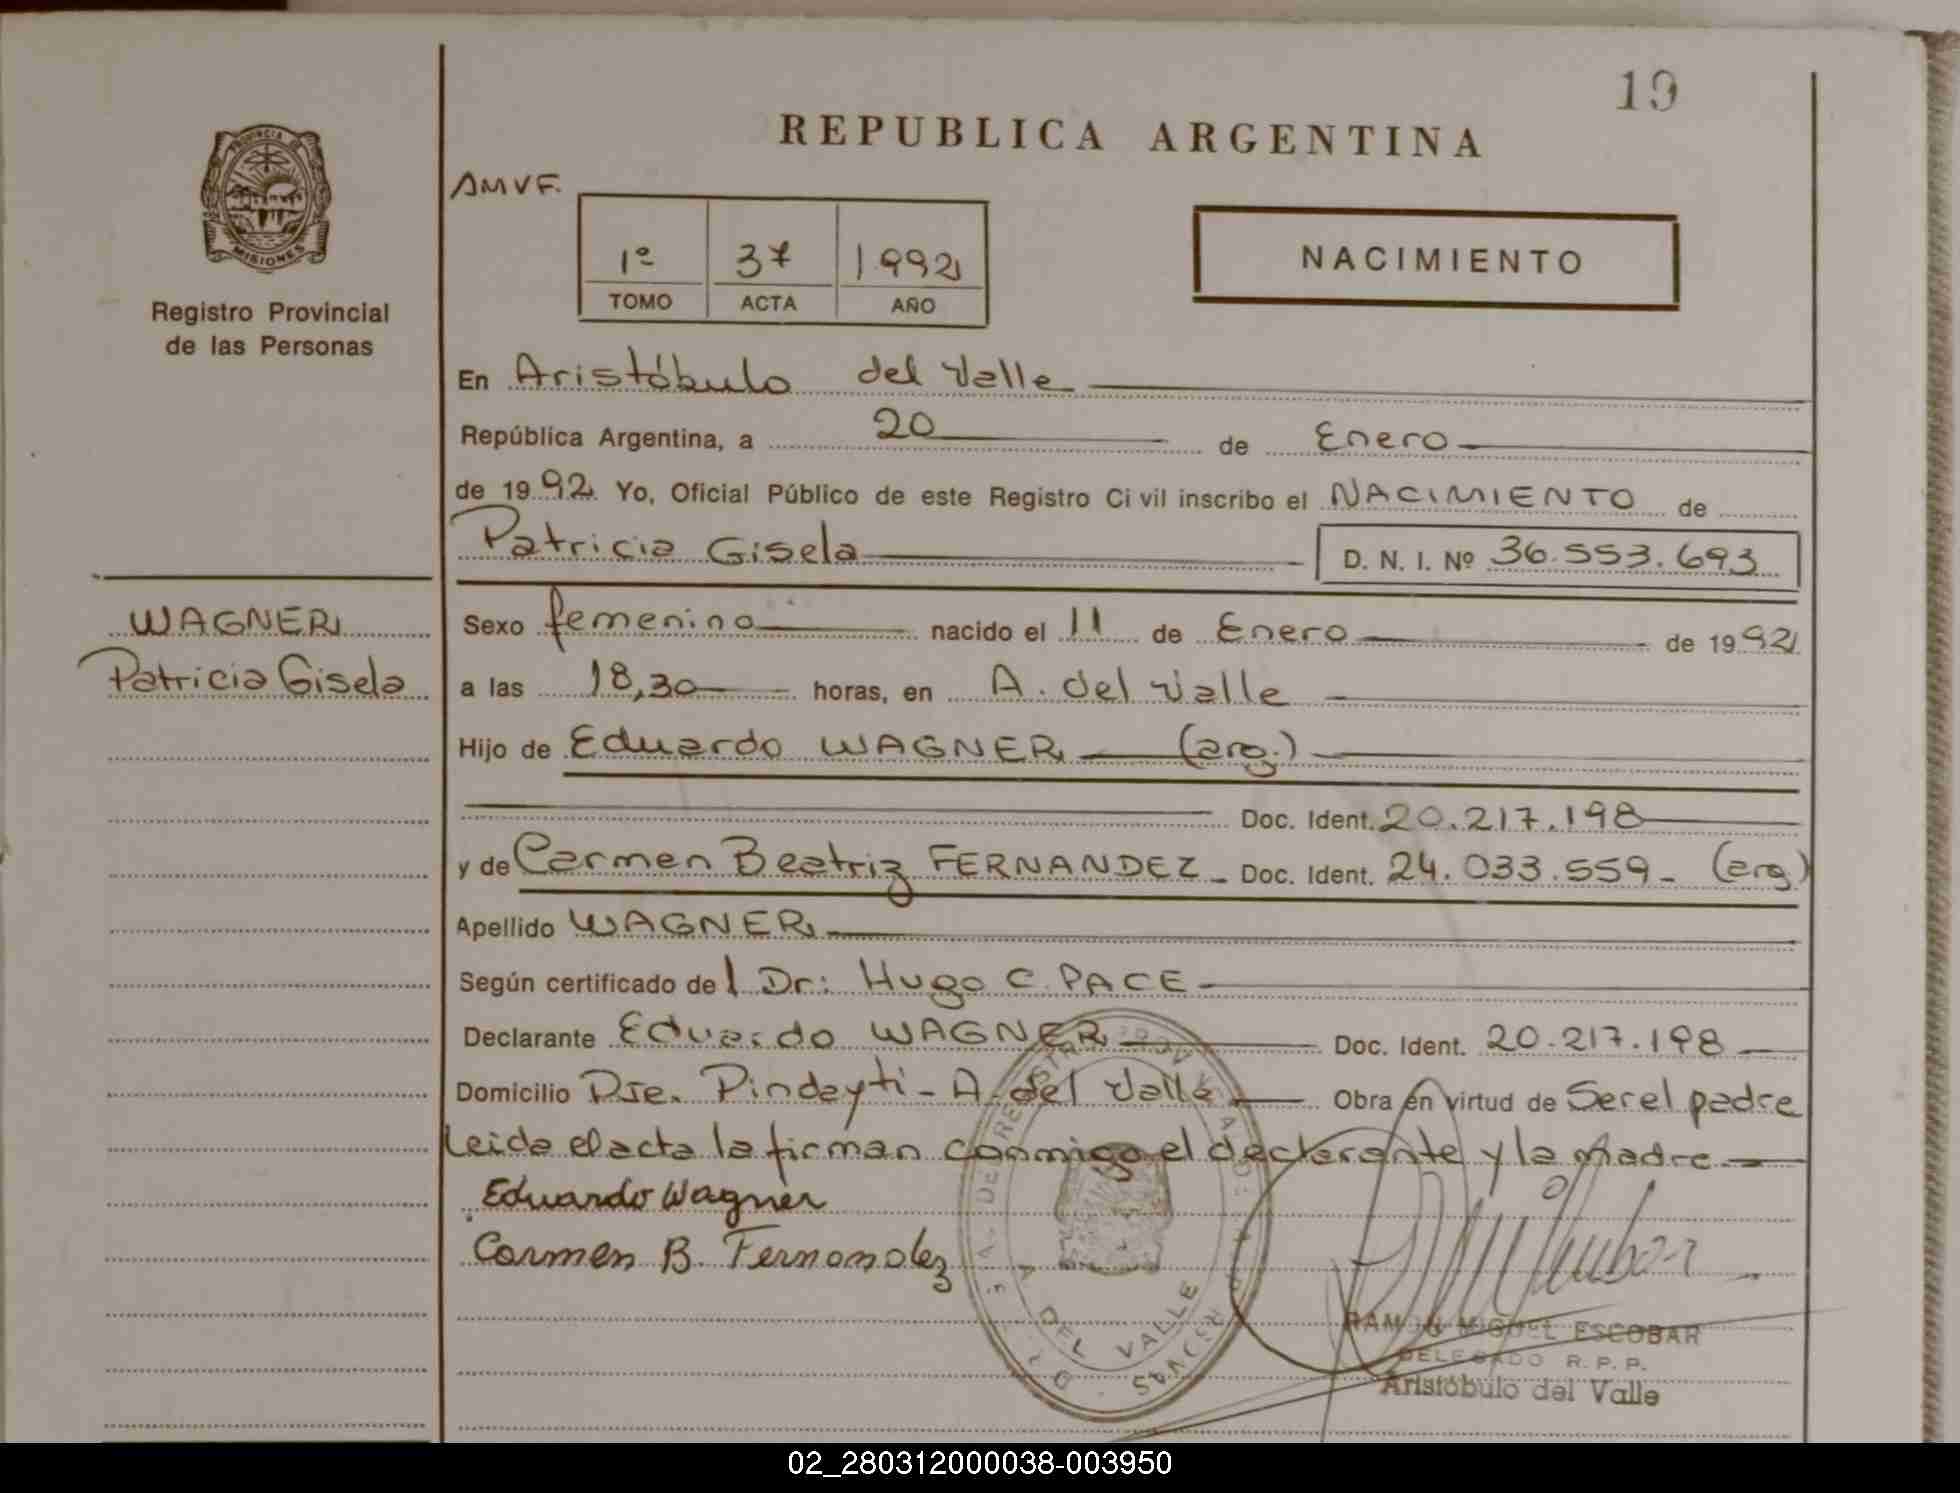 19
REPUBLICA ARGENTINA
PROVINCIA DE
MISIONES
Registro Provincial
de las Personas
AMVF.
1º 37 1.992
TOMO ACTA AÑO
NACIMIENTO
En Aristóbulo del Valle
República Argentina, a 20 de Enero
de 1992. Yo, Oficial Público de este Registro Civil inscribo el NACIMIENTO de
Patricia Gisela D. N. I. Nº 36.553.693
WAGNER
Patricia Gisela
Sexo femenino nacido el 11 de Enero de 1992
a las 18,30 horas, en A. del Valle
Hijo de Eduardo WAGNER (arg.)
Doc. Ident. 20.217.198
y de Carmen Beatriz FERNANDEZ - Doc. Ident. 24.033.559 - (arg)
Apellido WAGNER
Según certificado del Dr: Hugo C. PACE
Declarante Eduardo WAGNER Doc. Ident. 20.217.198
Domicilio Pje. Pindayti - A. del Valle Obra en virtud de Ser el padre
Leida el acta la firman conmigo el declarante y la madre
Eduardo Wagner
Carmen B. Fernandez
DEL VALLE
RAMON MIGUEL ESCOBAR
DELEGADO R. P. P.
Aristóbulo del Valle
02_280312000038-003950